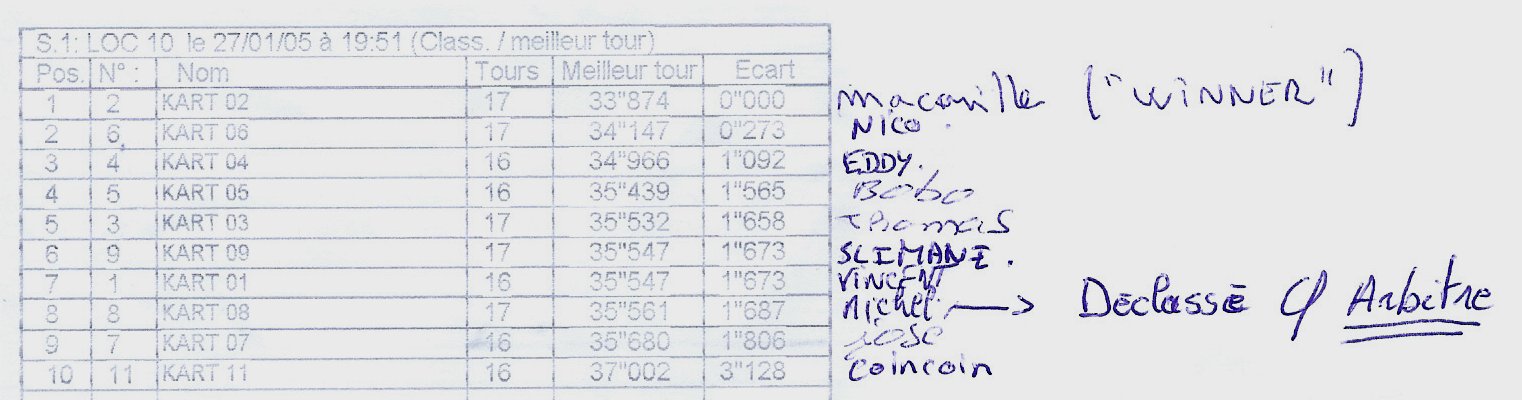 S.1: LOC 10 le 27/01/05 à 19:51 (Class. / meilleur tour)
Pos. N° : Nom Tours Meilleur tour Ecart
1 2 KART 02 17 33"874 0"000 macaville ("WINNER")
2 6 KART 06 17 34"147 0"273 NICO
3 4 KART 04 16 34"966 1"092 EDDY.
4 5 KART 05 16 35"439 1"565 Bobo
5 3 KART 03 17 35"532 1"658 Thomas
6 9 KART 09 17 35"547 1"673 SLIMANE.
7 1 KART 01 16 35"547 1"673 VINCENT
8 8 KART 08 17 35"561 1"687 Michel. —> Déclassé Arbitre
9 7 KART 07 16 35"680 1"806 José
10 11 KART 11 16 37"002 3"128 coincoin